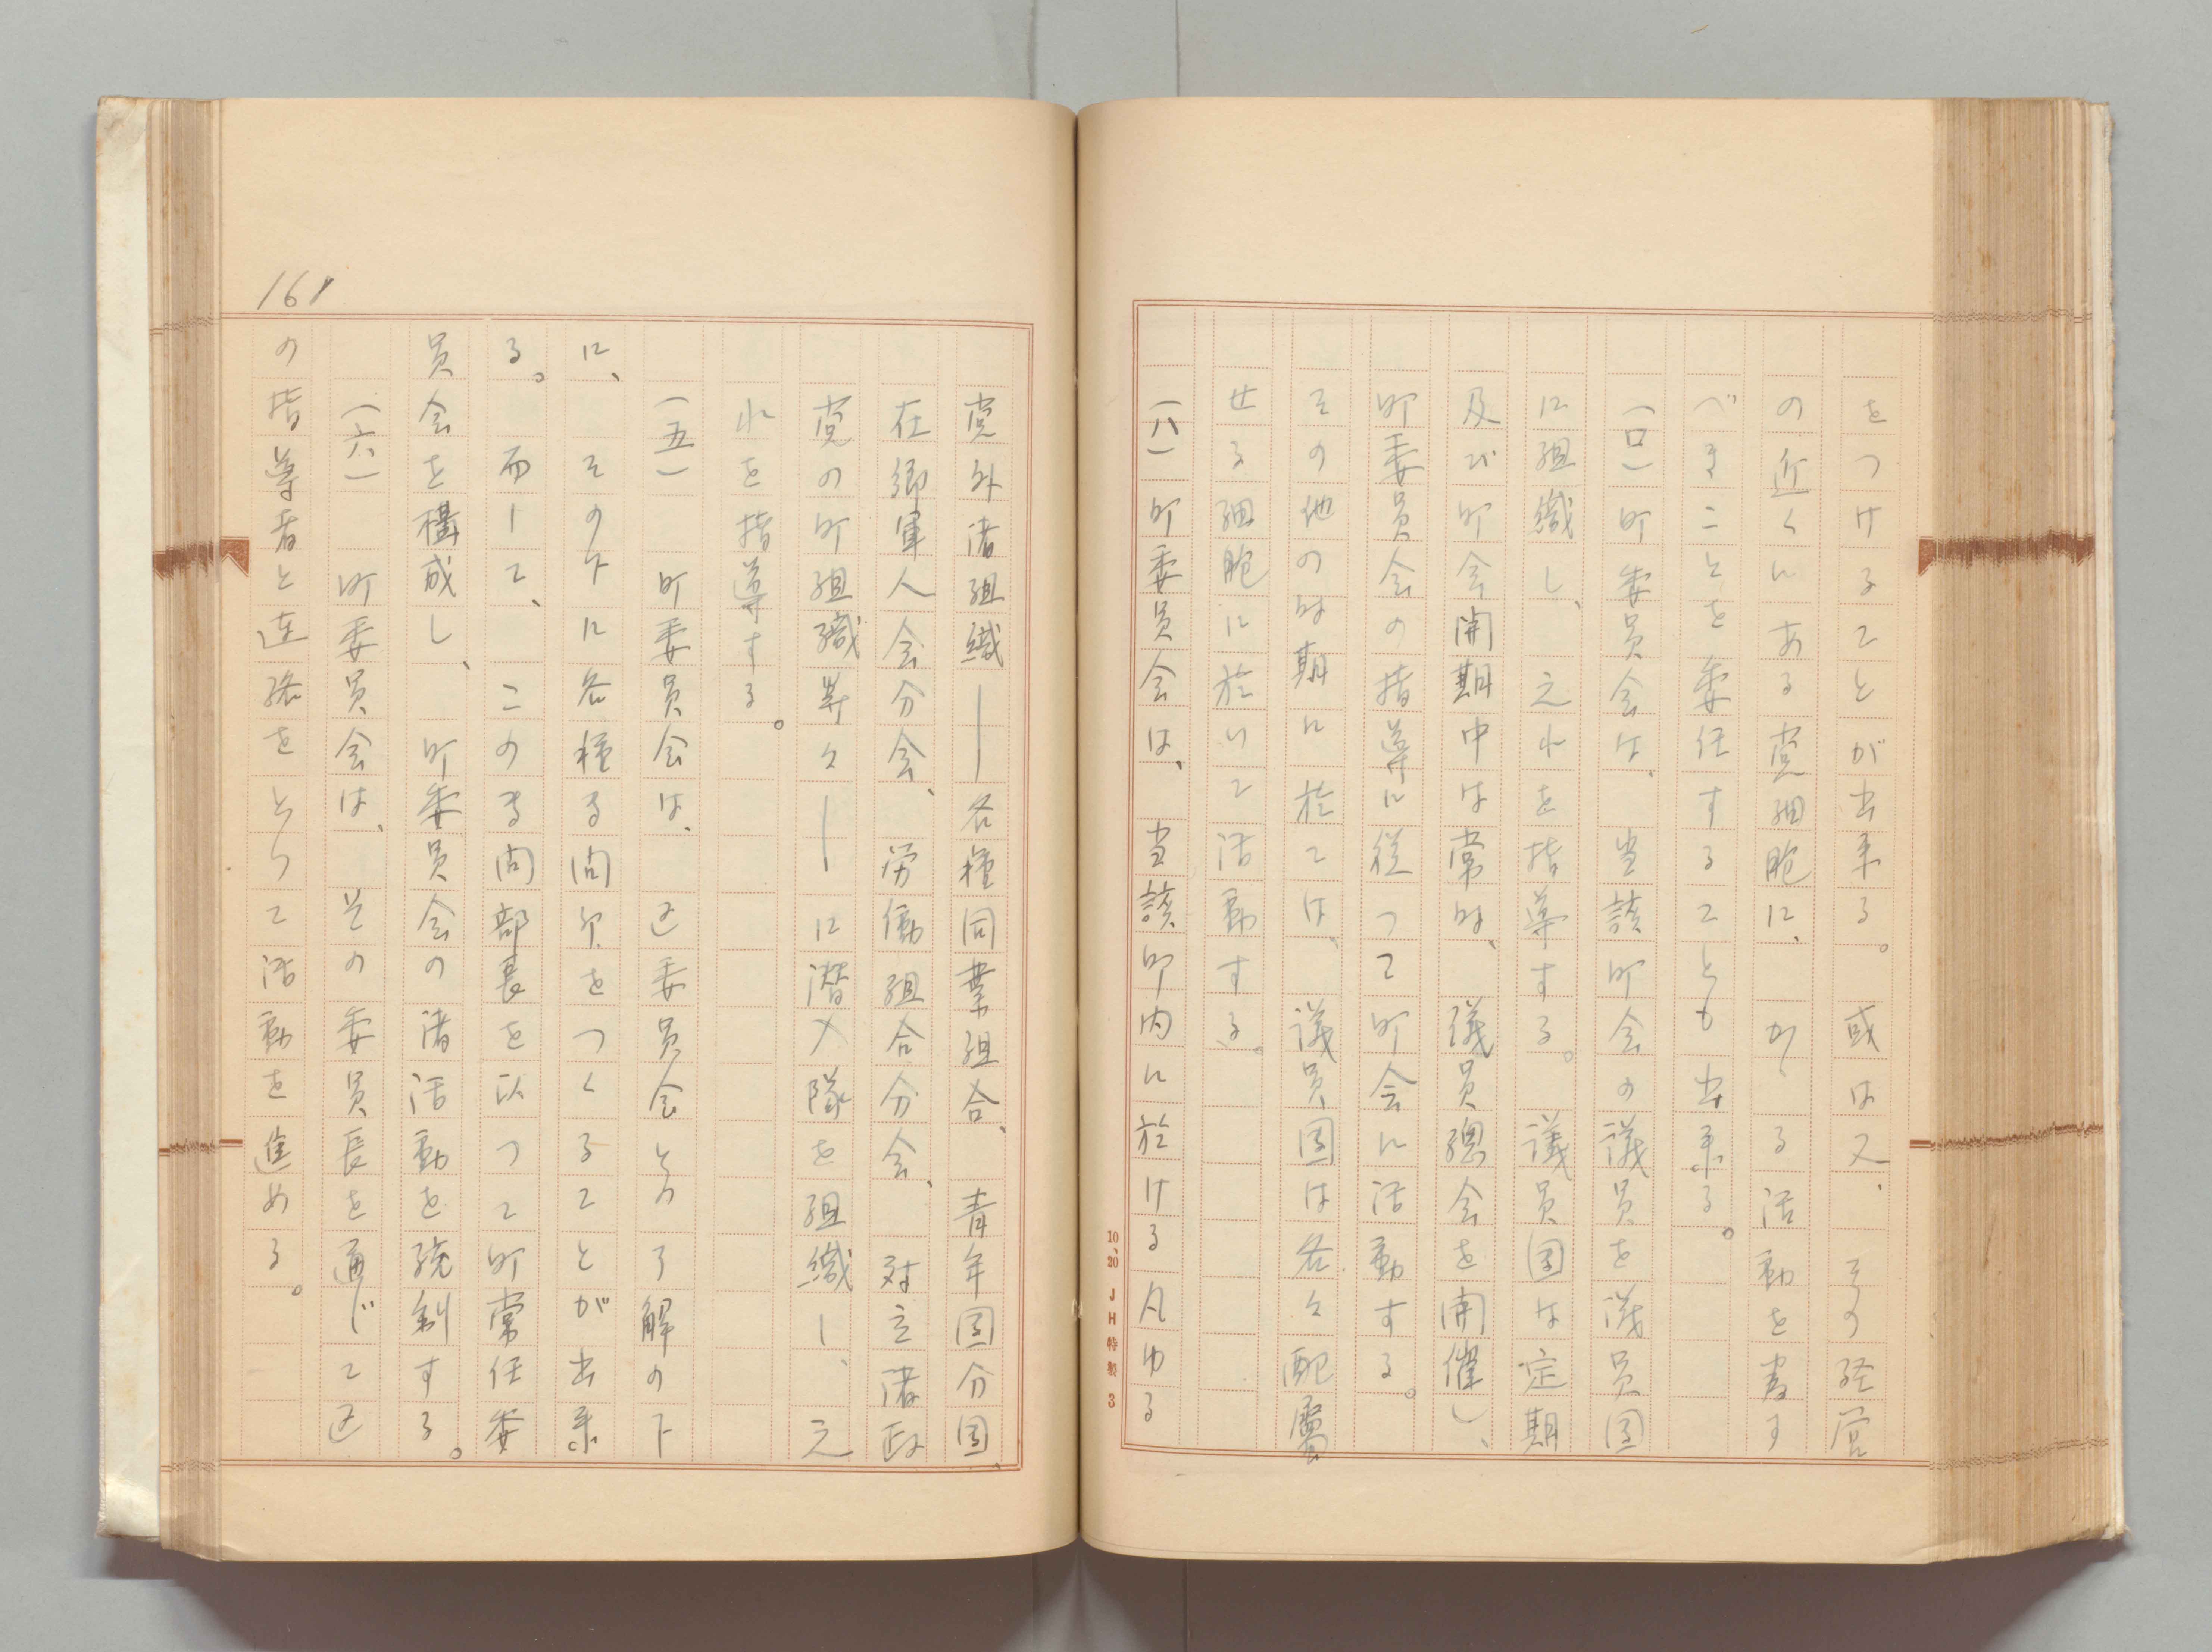 をつけることが出来る。或は又、その経営
の近くにある党細胞に、かゝる活動を為す
べきことを委任することも出来る。
(ロ)町委員会は、当該町会の議員を議員団
に組織し、之れを指導する。議員団は定期
及び町会開期中は常時、議員總会を開催し、
町委員会の指導に従つて町会に活動する。
その他の時期に於ては、議員団は各々配屬
せる細胞に於いて活動する。
(ハ)町委員会は、当該町内に於ける凡ゆる
10、20 JH特製 3
党外諸組織――各種同業組合、青年団分団、
在郷軍人会分会、労働組合分会、対立諸政
党の町組織等々――に潜入隊を組織し、之
れを指導する。
(五) 町委員会は、区委員会との了解の下
に、その下に各種る問部をつくることが出来
る。而して、この専問部長を以つて町常任委
員会を構成し、町委員会の諸活動を統制する。
(六) 町委員会は、その委員長を通じて区
の指導者と連絡をとつて活動を進める。
161